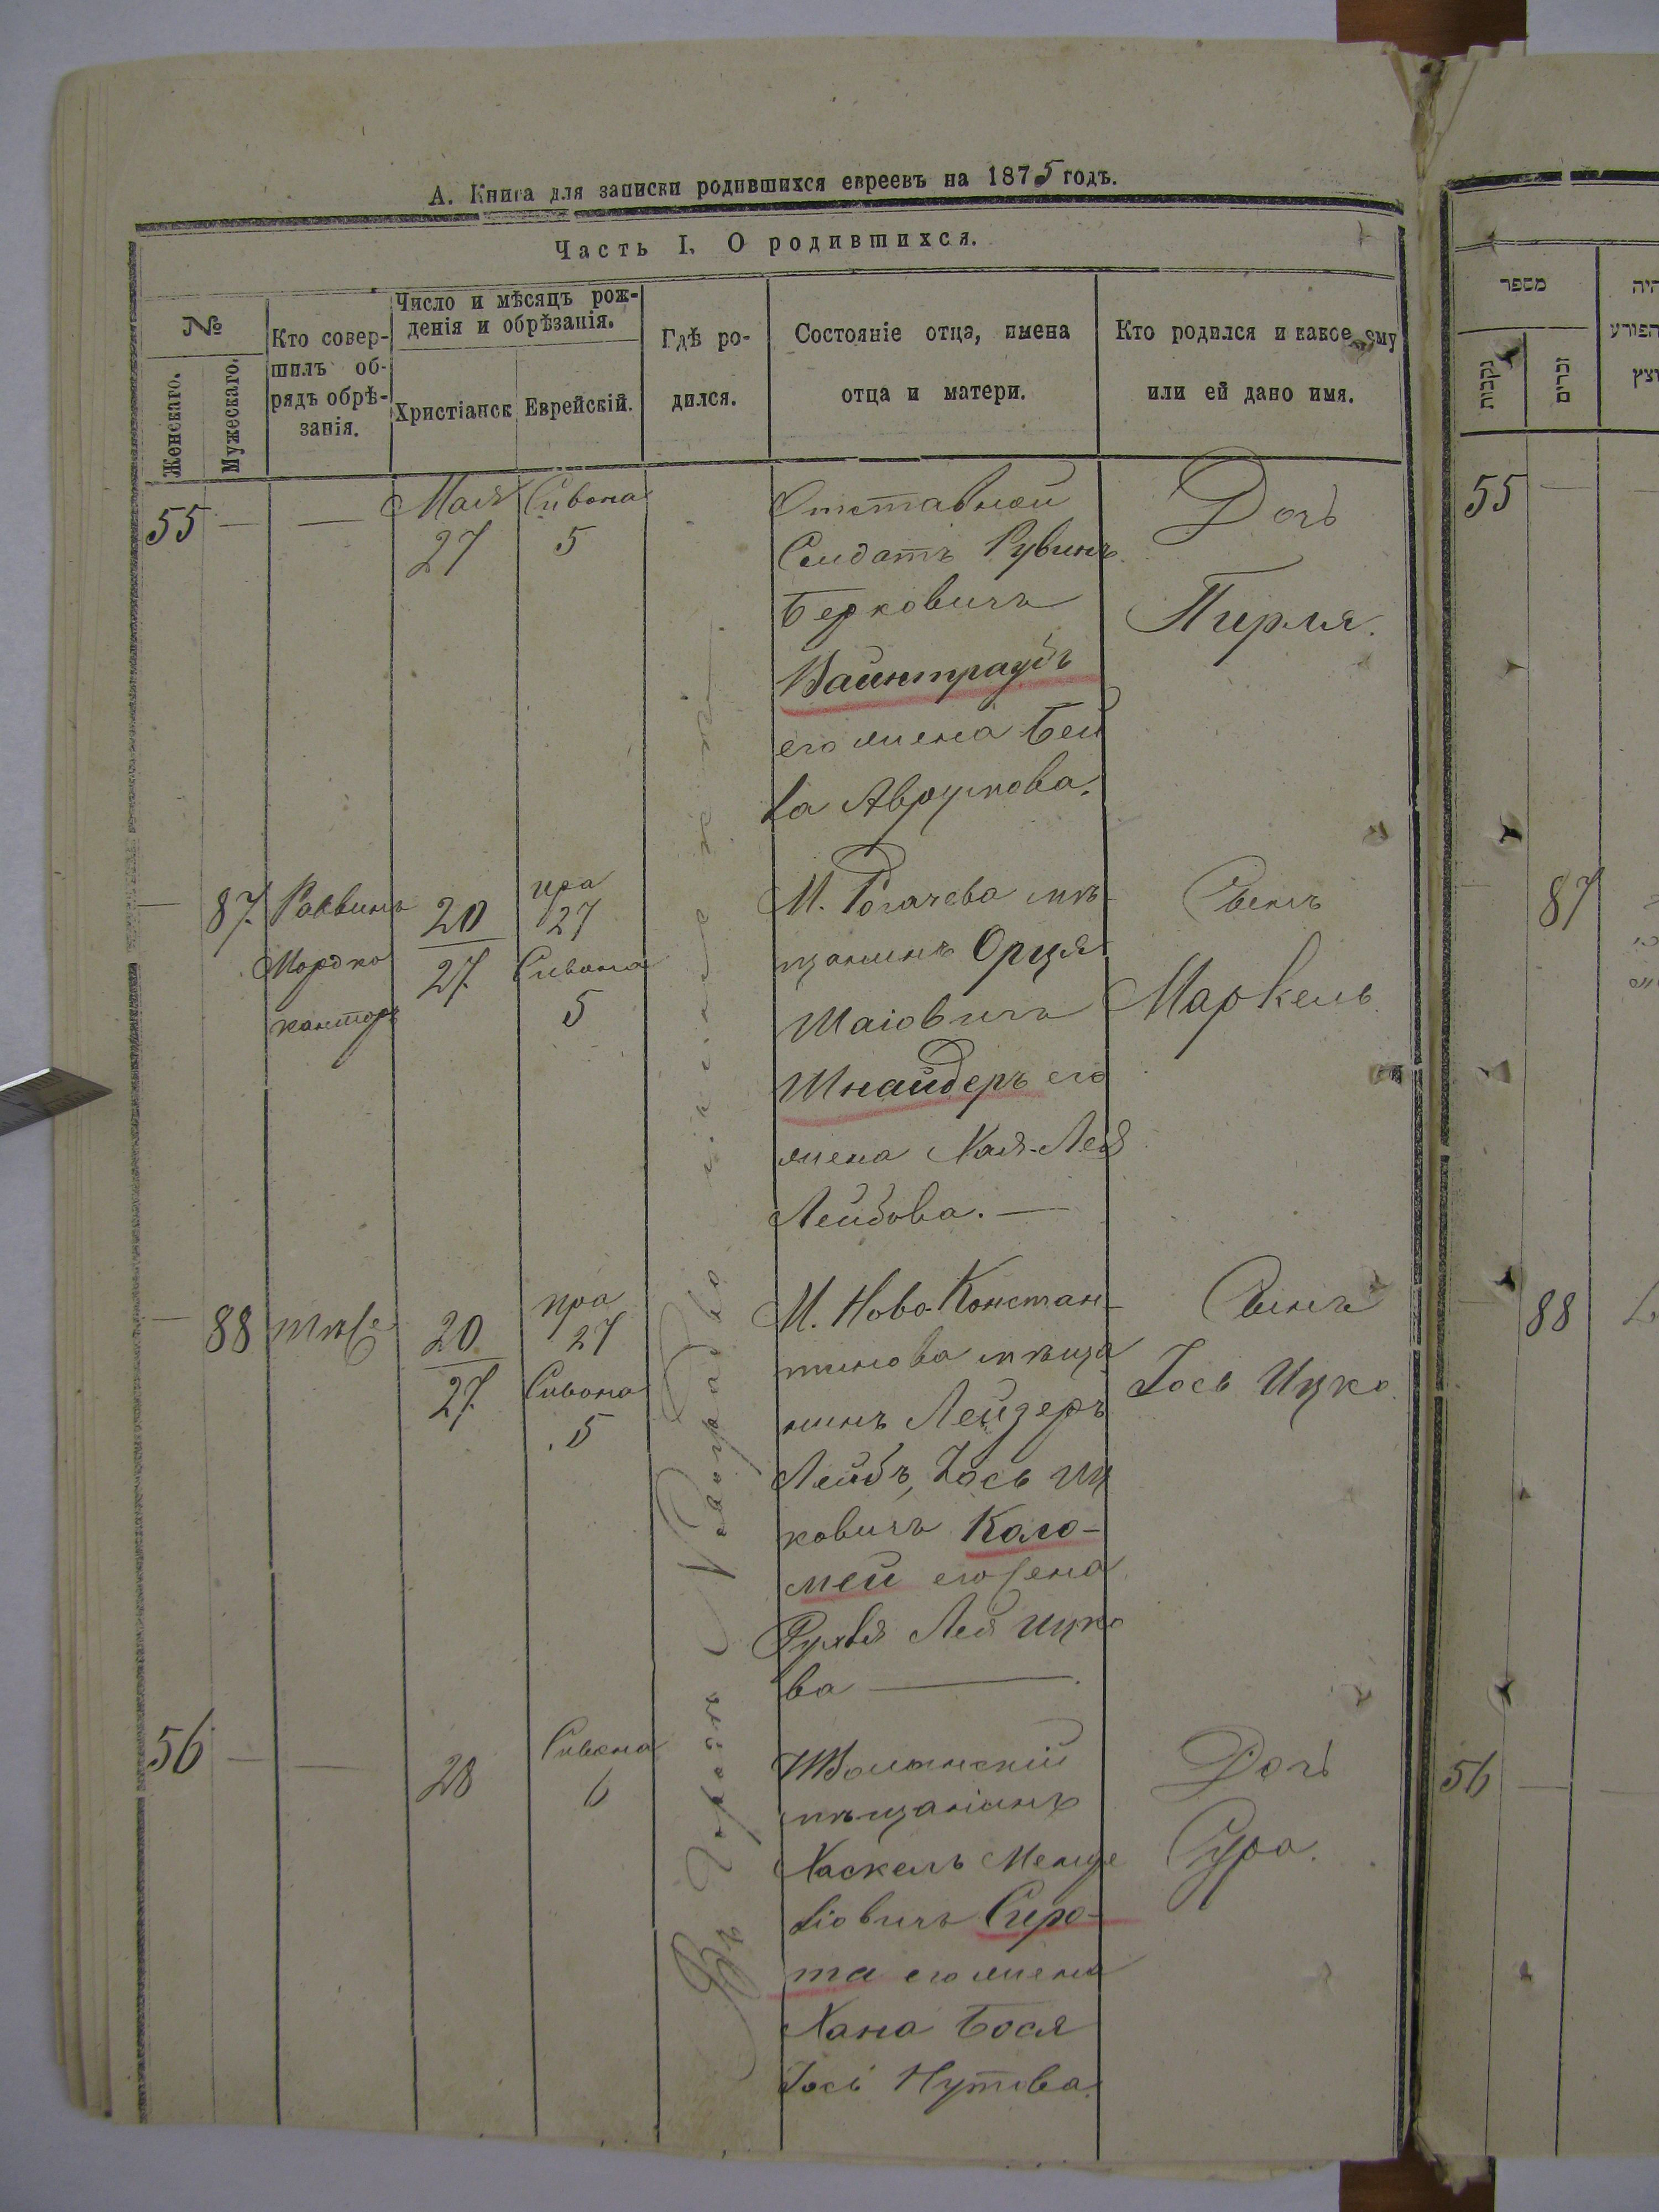 А. Книга для записки родившихся евреевъ на 1875 годъ.
Часть I. О родившихся.
№
Женскаго.
Мужескаго.
Кто совер-
шилъ об-
рядъ обрѣ-
занія.
Число и мѣсяцъ рож-
денія и обрѣзанія.
Христіанск
Еврейскій.
Гдѣ ро-
дился.
Состояніе отца, имена
отца и матери.
Кто родился и какое ему
или ей дано имя.
55 — —
Мая
27
Сивона
5
Отставной
Солдатъ Рувинъ
Берковичъ
Вайнтраубъ
его жена Бей
ла Аврумова.
Дочь
Пирля.
— 87.
Раввинъ
Мордко
канторъ
20
27.
ира
27
Сивона
5
М. Рогачева мѣ-
щанинъ
Шаіовичъ
Шнайдеръ его
жена Хая-Лея
Лейбова. —
Сынъ
Маркель.
— 88
тже
20
27.
ира
27
Сивона
5
М. Ново-Констан-
тинова мѣща
нинъ Лейзеръ
Лейбъ, Іось Иц
ковичъ Коло-
мей его жена
Рухля Лея Ицко
ва —
Сынъ
Іось Ицко.
56 — —
28
Сивона
6
мѣщанинъ
Хаскель
Сиро-
та его жена
Хана Бося
Нутова.
Дочь
Сура.
Въ городѣ
מספר
נקבות
זכרים
55 —
87
88
56 —